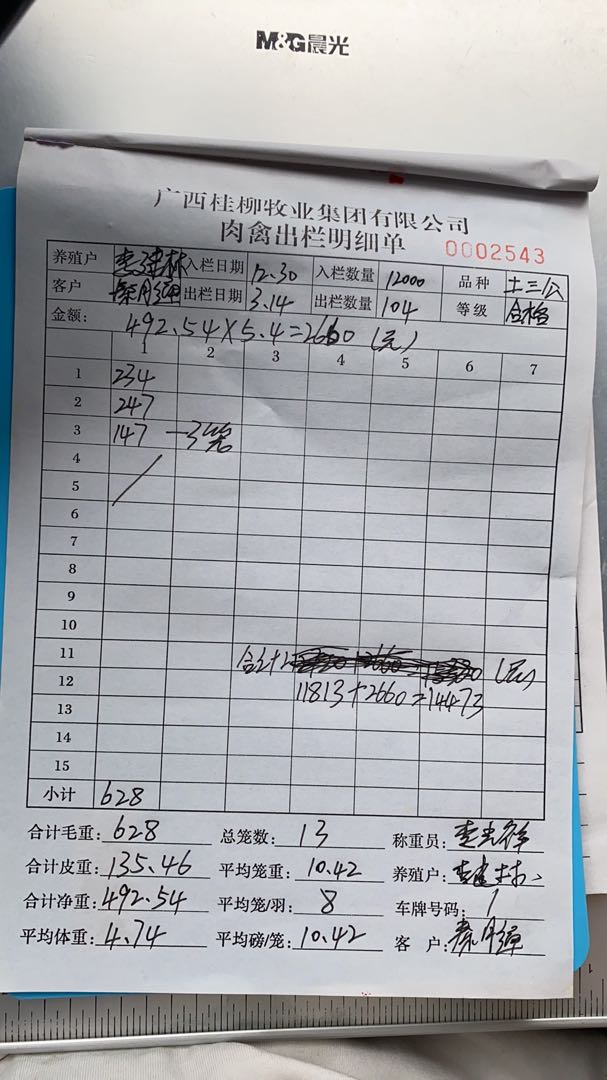 M&G晨光
广西桂柳牧业集团有限公司
肉禽出栏明细单
0002543
养殖户 入栏日期 12.30 入栏数量 12000 品种 土三公
客户 秦月弾 出栏日期 3.14 出栏数量 104 等级 合格
金额: 492.54×5.4=2660(元)
1 2 3 4 5 6 7
1 234
2 247
3 147 一3笼
4
5
6
7
8
9
10
11 合计 (元)
12 11813+2660=14473
13
14
15
小计 628
合计毛重: 628 总笼数: 13 称重员:
合计皮重: 135.46 平均笼重: 10.42 养殖户:
合计净重: 492.54 平均笼/羽: 8 车牌号码: /
平均体重: 4.74 平均磅/笼: 10.42 客户: